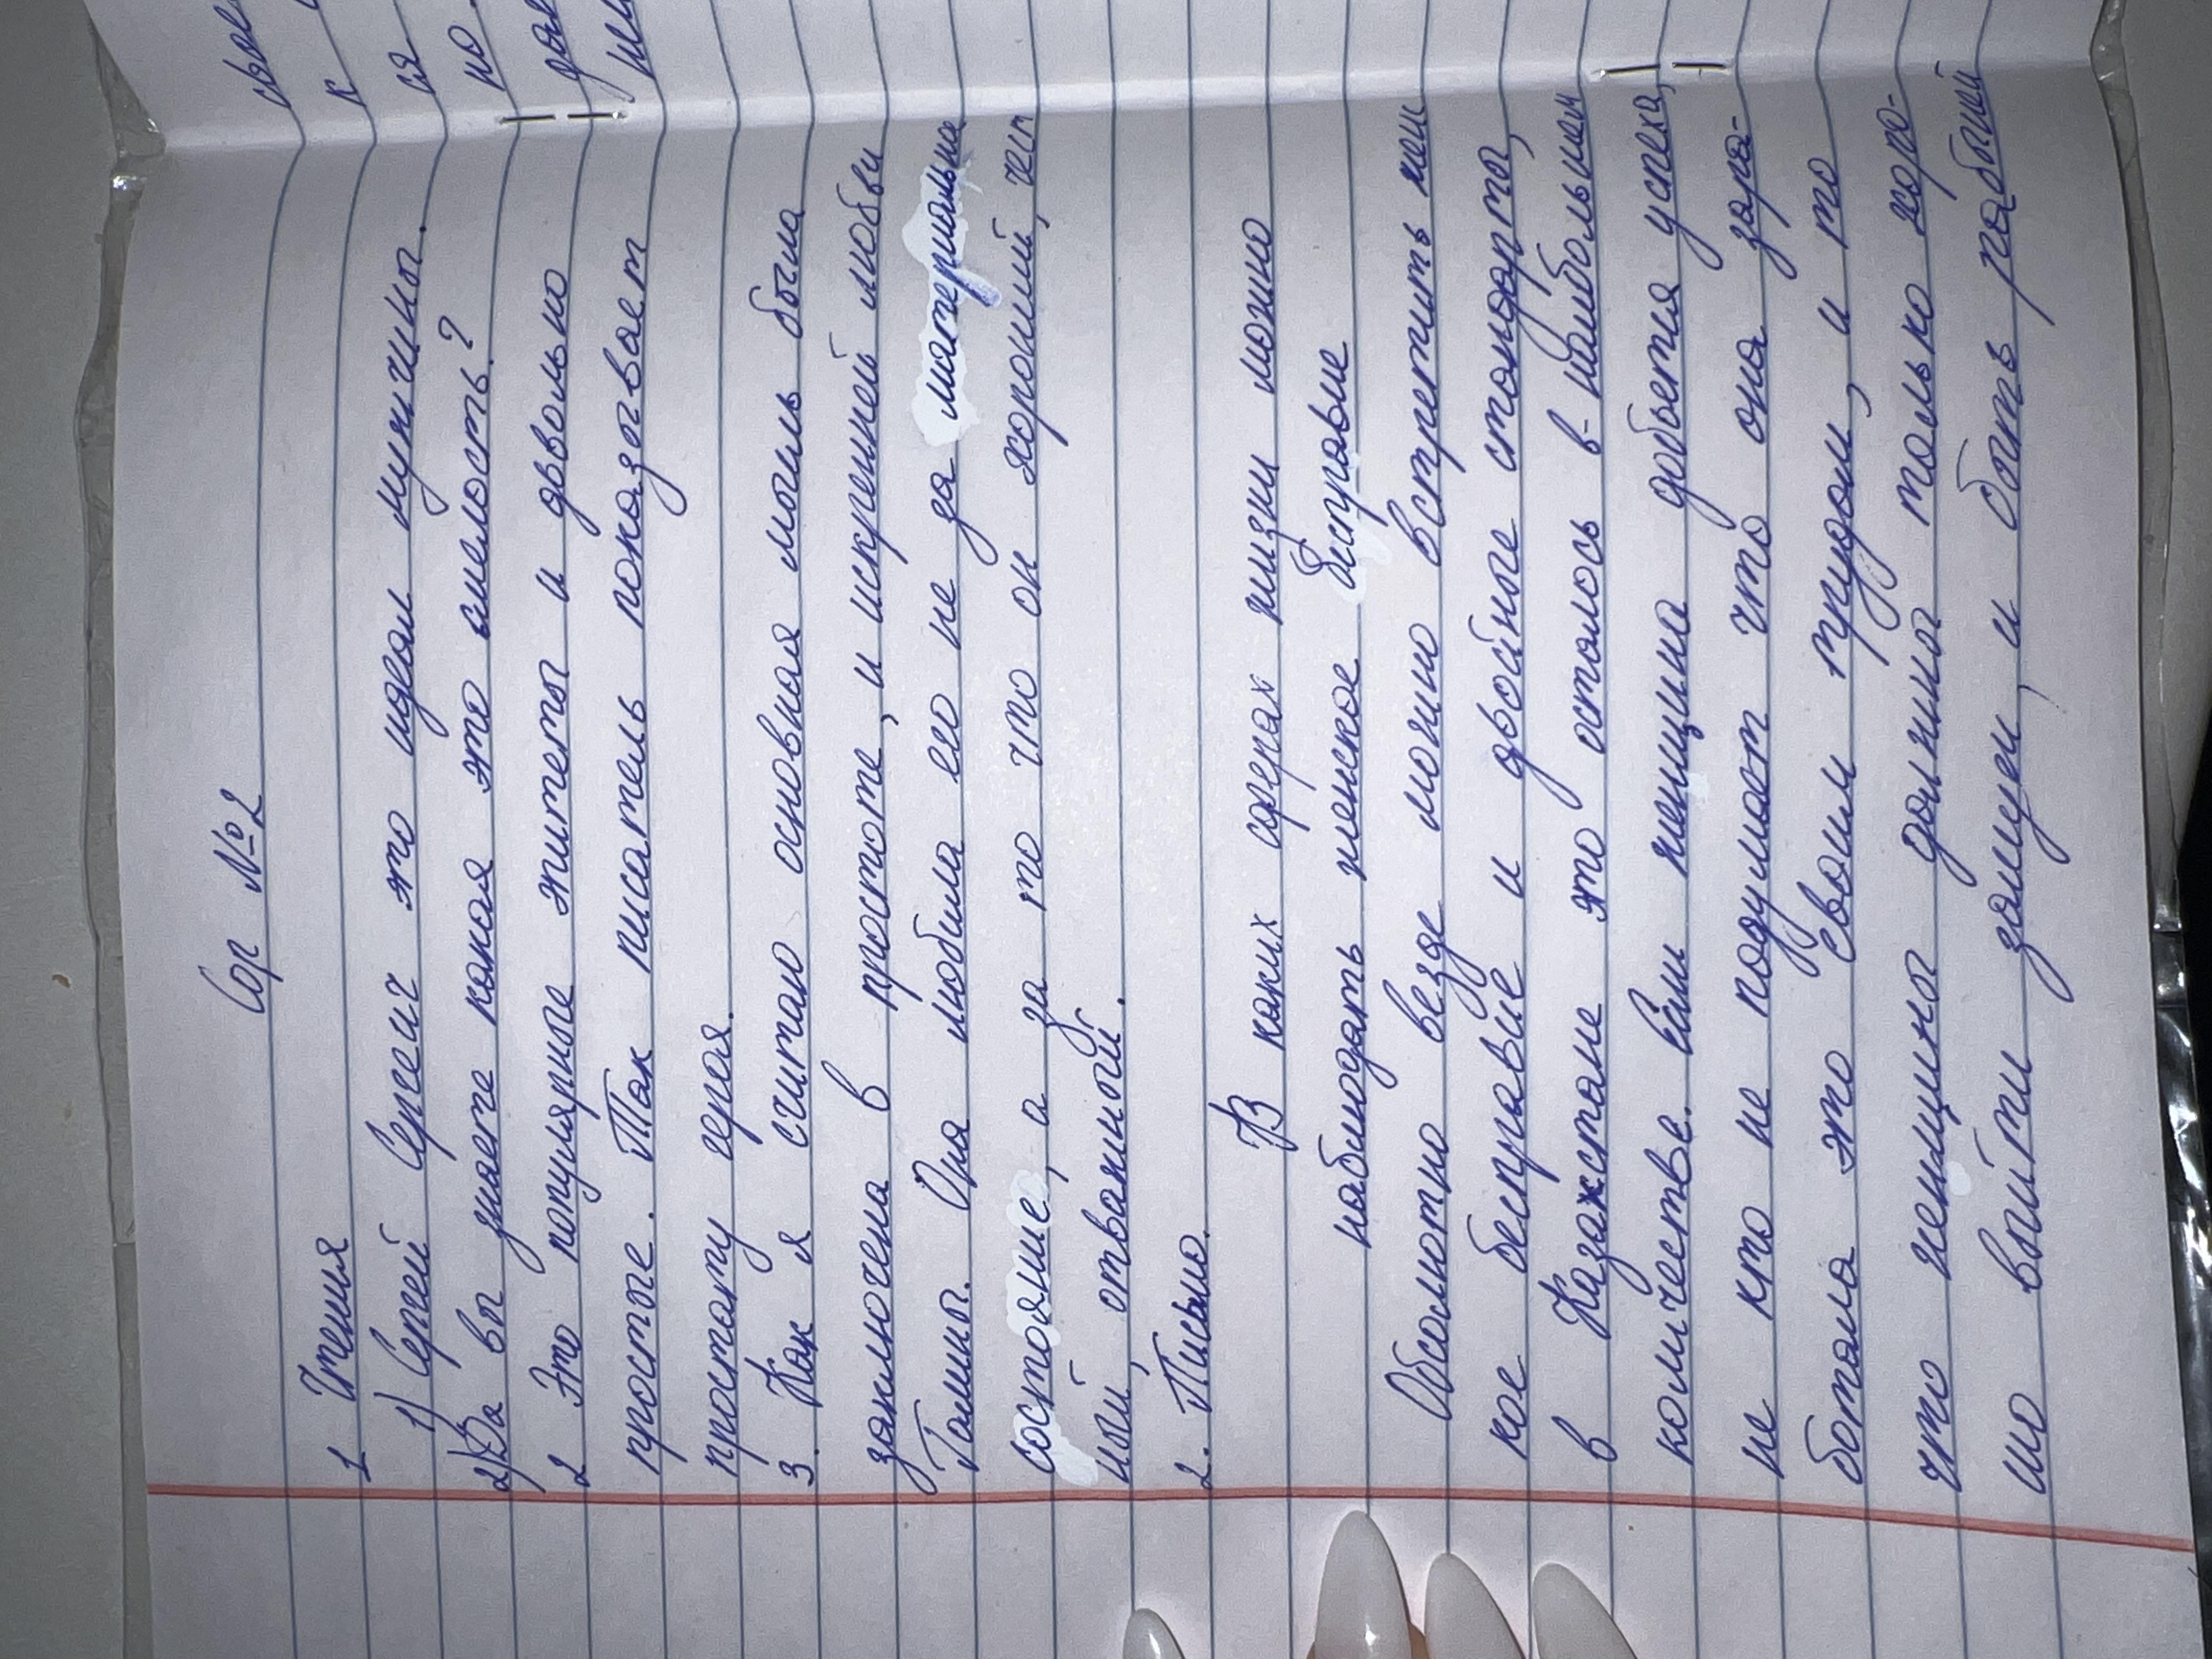 Сор №2
1 Чтения
1) Сергей Сергеич это идеал мужчины.
2) Да вы знаете какая это смелость?
2 Это популярные эпитеты и довольно
простые. Так писатель показывает
простату героя.
3. Как я считаю основная мысль была
заключена в простоте, и искренной любви
Галины. Она любила его не за материальна
состояние, а за то что он хороший, чест
ный, отважный.
2. Письмо.
В каких сферах жизни можно
наблюдать женское бесправие
Абсолютно везде можно встретить жен
кое бесправие и двойные стандарты,
в Казахстане это осталось в наибольшем
количестве. Если женщина добьется успеха,
не кто не подумает что она зара-
ботала это своим трудом, и то
что женщины должны только хоро-
шо выйти замуж, и быть рабыней